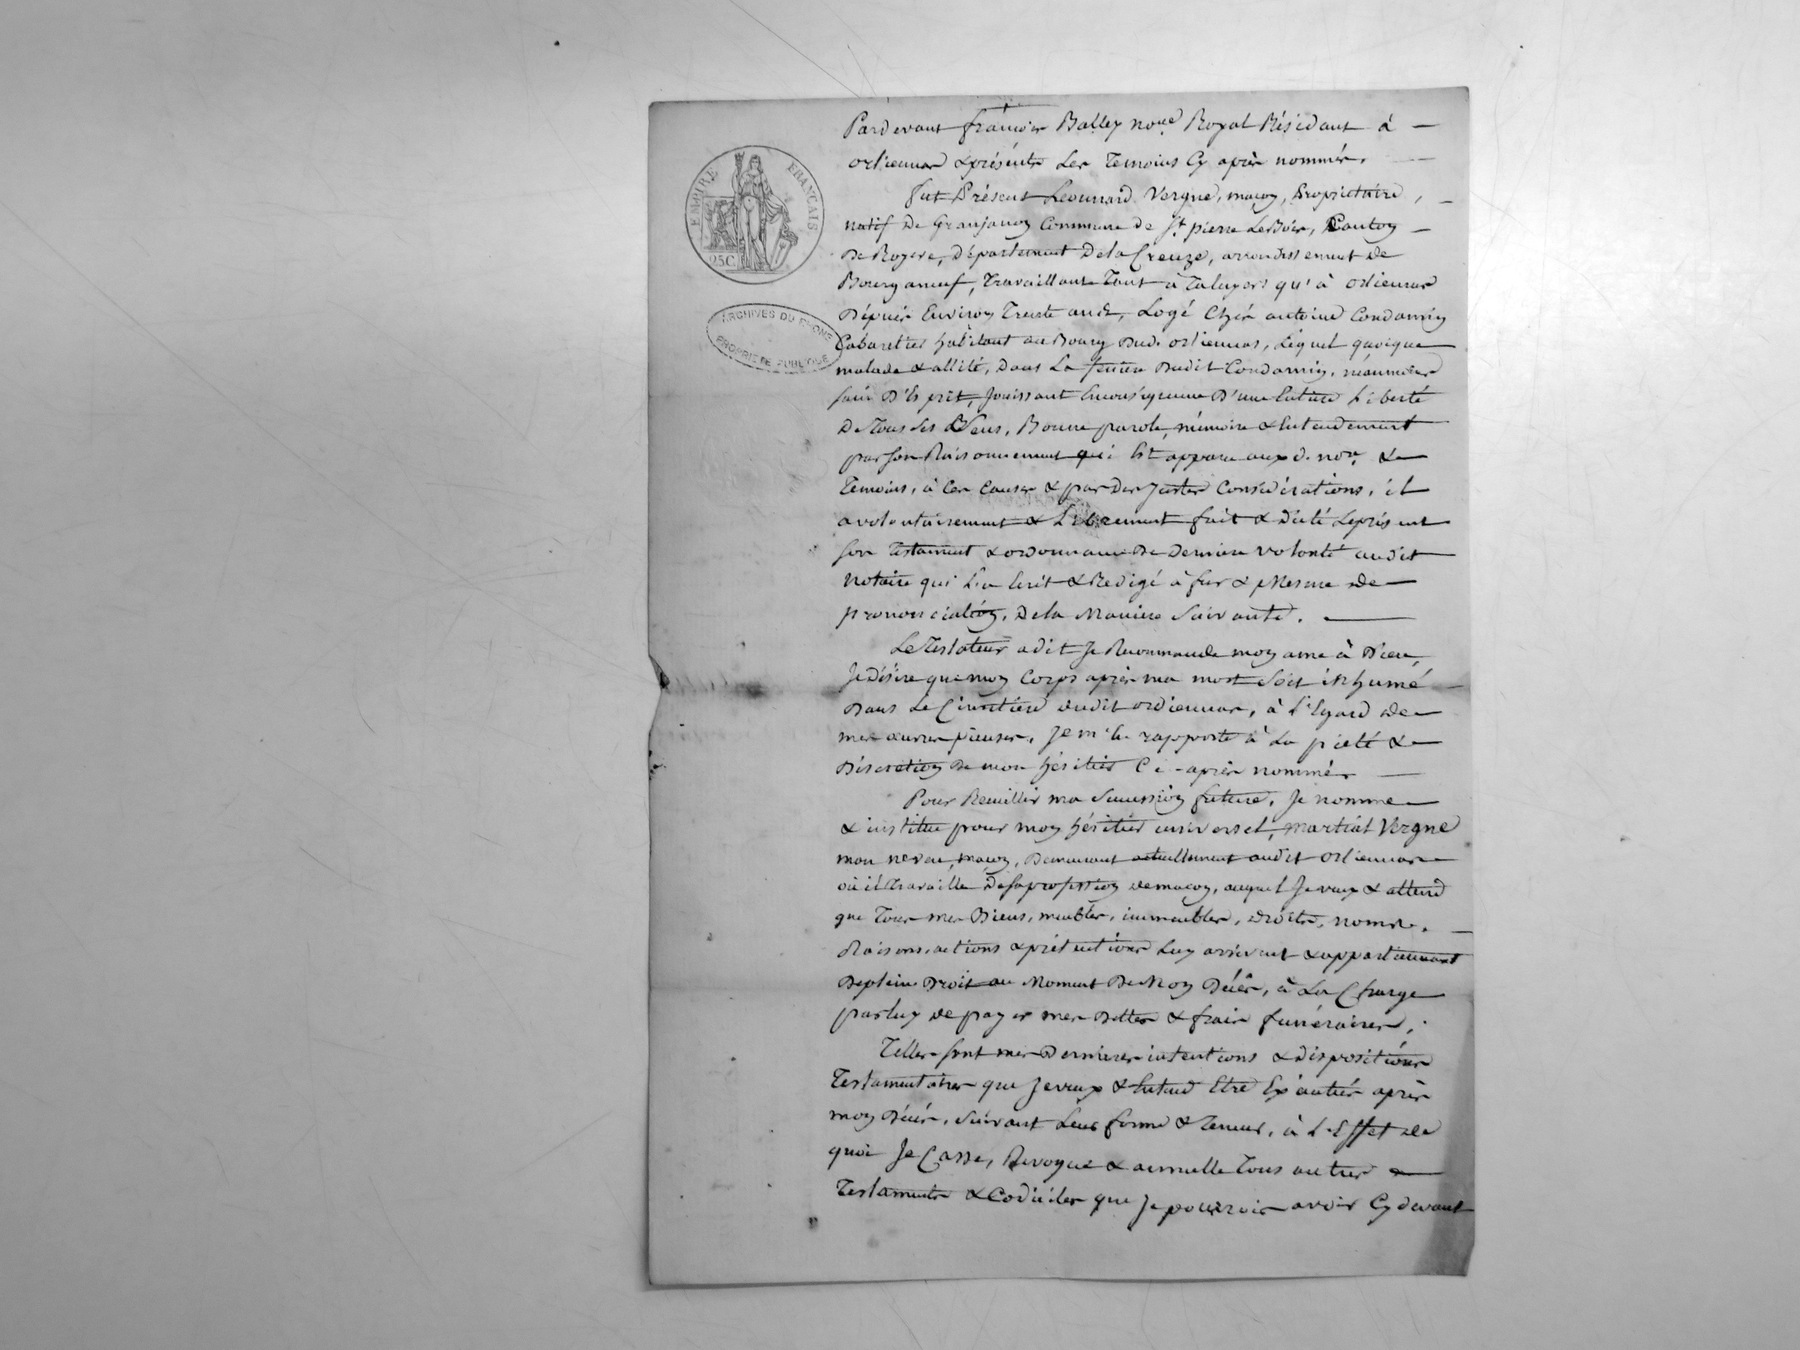 EMPIRE FRANÇAIS
25 C.
ARCHIVES DU RHONE
PROPRIETE PUBLIQUE
Pardevant françois Balley no.re Royal Résidant à
orliennas & présents Les Temoins Cy après nommés.
fut Présent Léonnard Vergne, maçon, Propriétaire,
natif De Granjanon Commune de St. pierre LeBois, Canton
De Royere, Département DelaCreuze, arrondissement de
Bourganeuf, Travaillant Tant à Taluyers qu'à orliennas
Dépuis Environ Trente ands, Logé Chés antoine Condamin
Cabaretier habitant au Bourg Dud. orliennas, Léquel quoique
malade & allité, Dans La Dudit Condamin, néanmoins
sain D'Esprit, Jouissant D'une Entiere Liberté
De Tous ses Sens, Bonne parole, mémoire & Entendement
par son Raisonnement qui Est apparu aux d. no.re &
Temoins, à Ces Causes & par Des Justes Considérations, il
a volontairement & Librement fait & dicté Leprésent
son Testament & ordonnance De Derniere volonté audit
Notaire qui L'a Ecrit & Redigé à fur & Mesure de
prononciation, Dela Maniere Suivante.
Le Testateur a dit Je Recommande mon ame à Dieu,
Je Désire que mon Corps après ma mort Soit inhumé
Dans Le Cimetière dudit orliennas, à L'Egard de
mes œuvres pieuses, Je m'en rapporte à La piété &
Discretion De mon héritier Ci-après nommé
Pour Receuillir ma Succession future, Je nomme
& institue pour mon héritier universel, martial Vergne
mon neveu, maçon, Demeurant actuellement audit orliennas
où il Travaille Desaprofession demaçon, auquel Je veux & attend
que Tous mes Biens, meubles, immeubles, droits, noms,
Raisons, actions & prétentions Luy arrivent & appartiennent
Deplein Droit au Moment De Mon Décès, à La Charge
parluy de payer mes Dettes & frais funéraires,
Telles sont mes Dernieres intentions & dispositions
Testamentaires que Je veux & Entend Etre Exécutés après
mon Décès, Suivant Leur forme & Teneur, à L'Effet de
quoi Je Casse, Revoque & annulle Tous autres
Testaments & Codiciles que Je pourrois avoir Cydevant